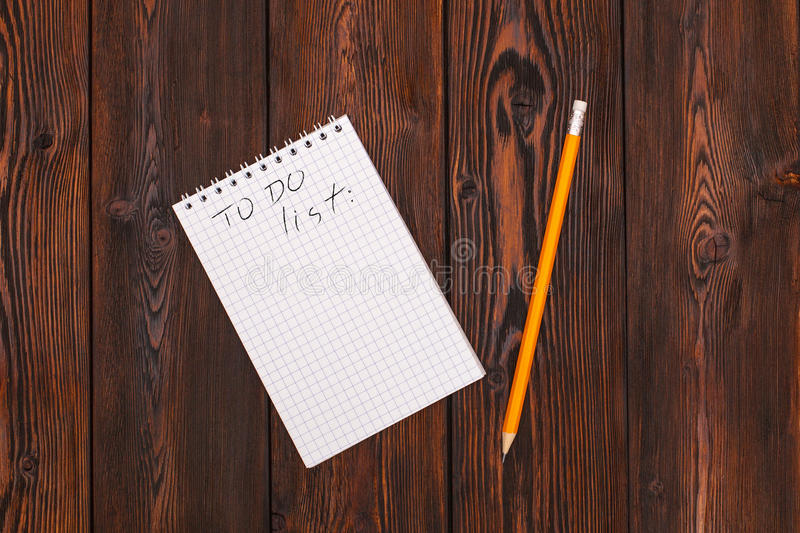 TO DO
list:
dreamstime